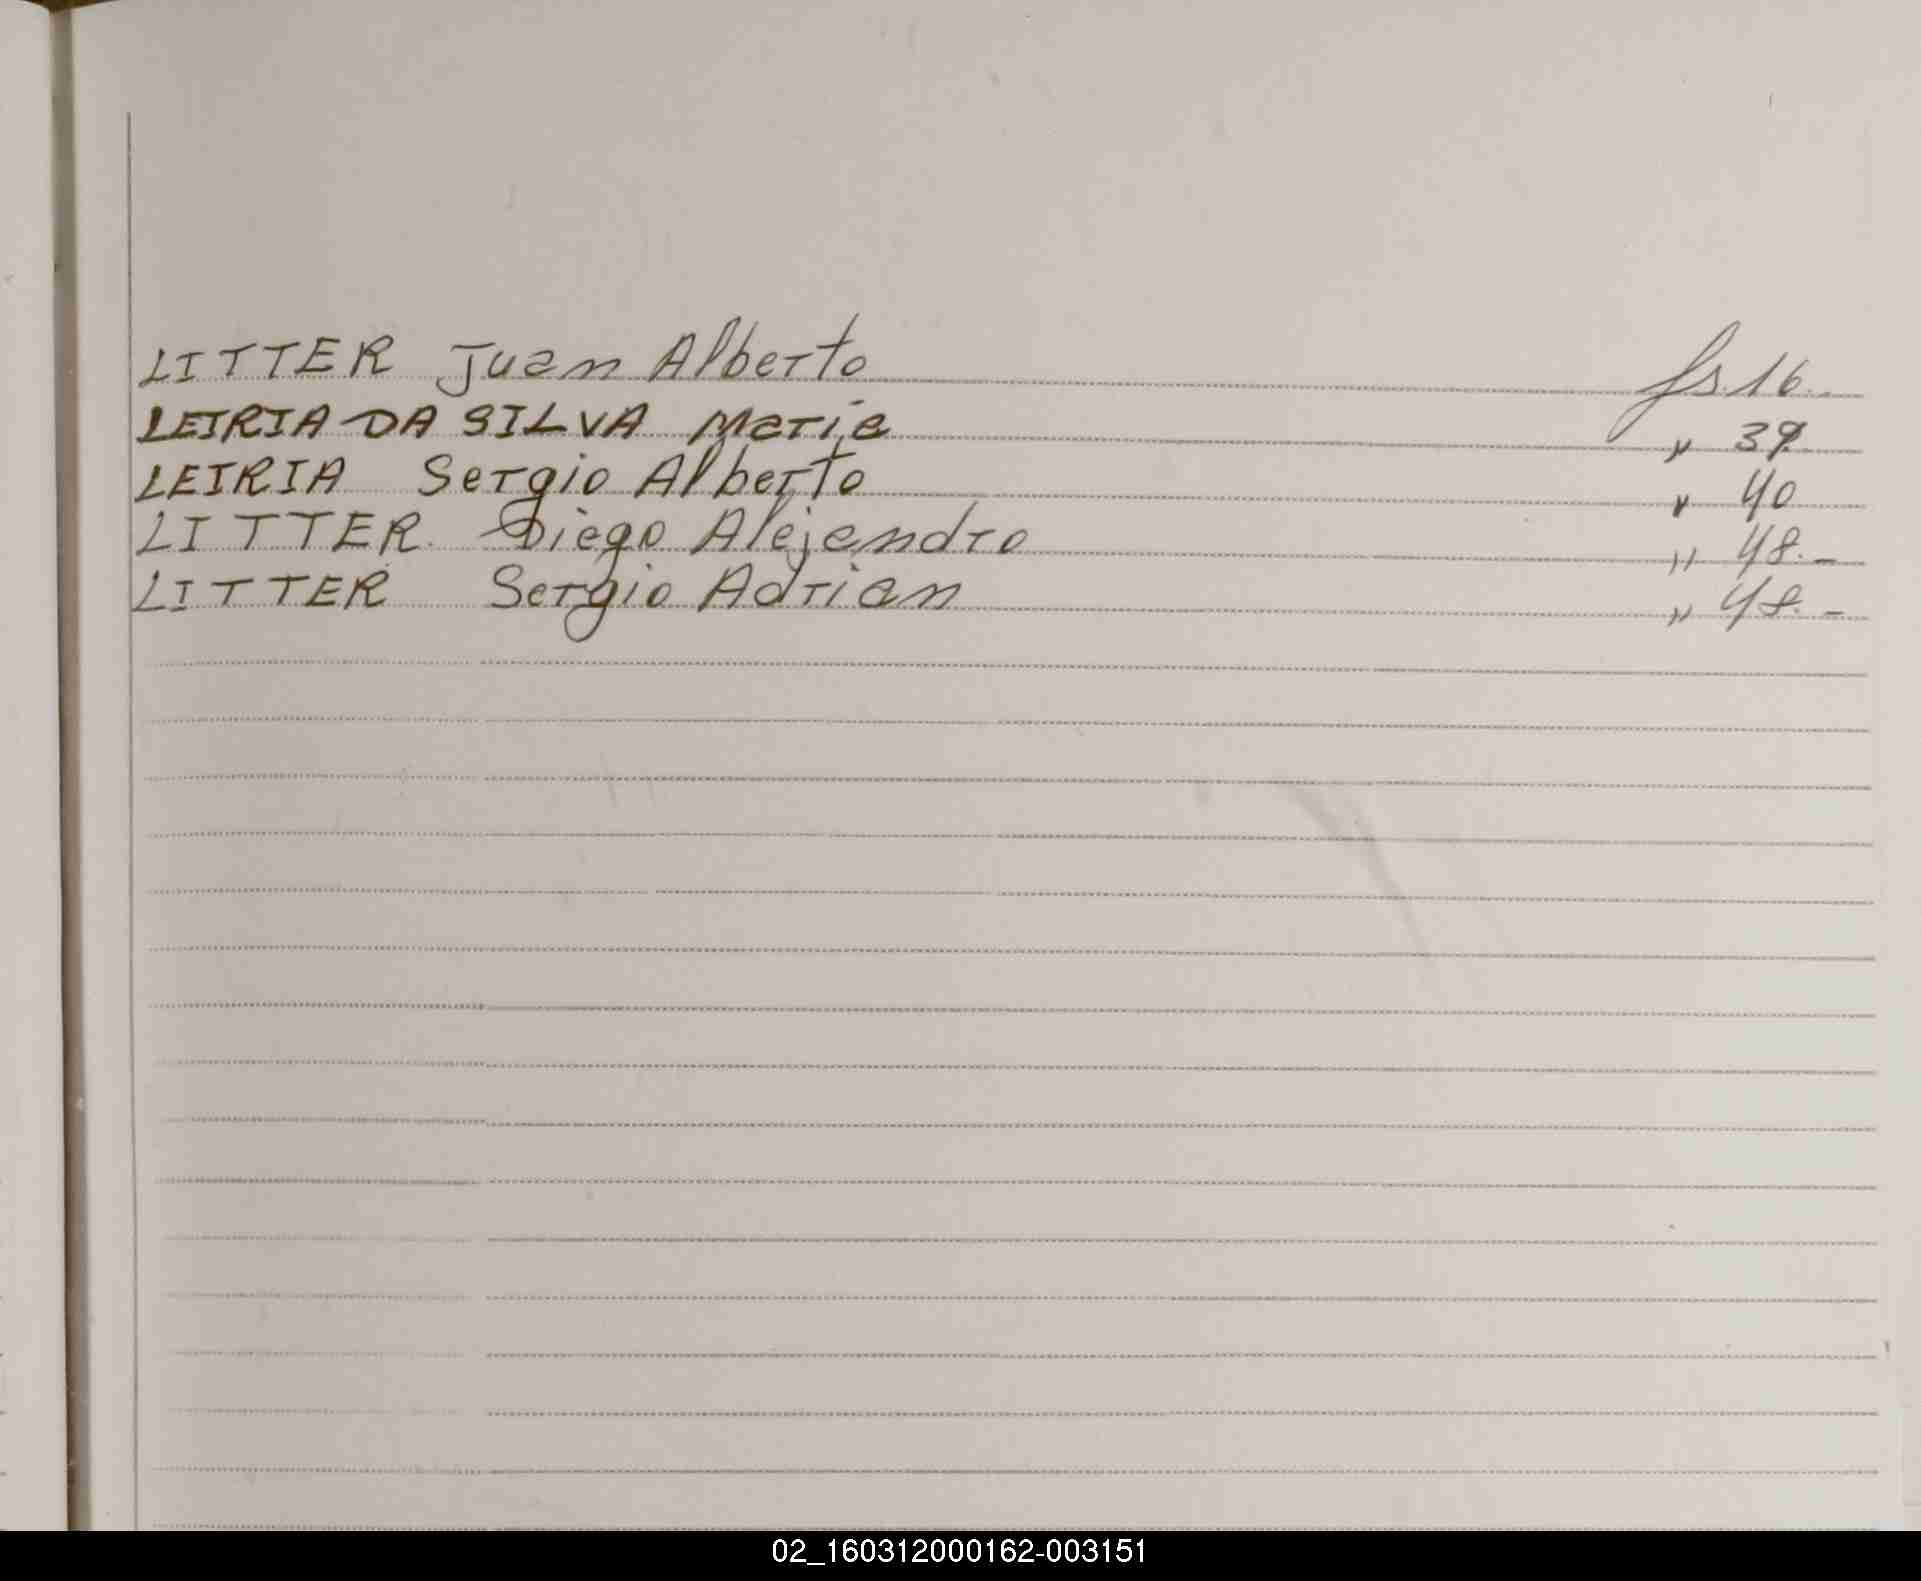 LITTER Juan Alberto fs. 16.-
LEIRIA DA SILVA Maria " 39
LEIRIA Sergio Alberto " 40
LITTER Diego Alejandro " 48.-
LITTER Sergio Adrian " 48.-
02_160312000162-003151